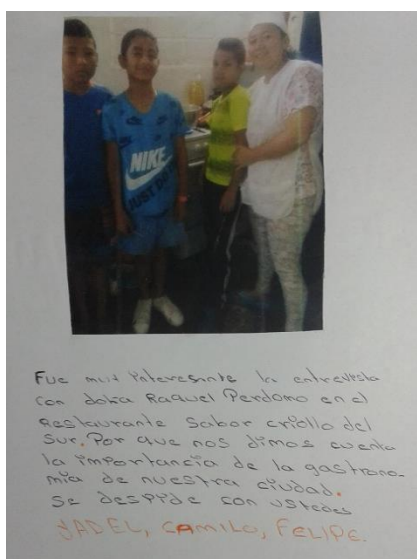 NIKE
JUST DO IT
Fue muy interesante la entrevista
con doña Raquel Perdomo en el
Restaurante Sabor criollo del
Sur. Por que nos dimos cuenta
la importancia de la gastrono-
mía de nuestra ciudad.
Se despide con ustedes
YADEL, CAMILO, FELIPE.